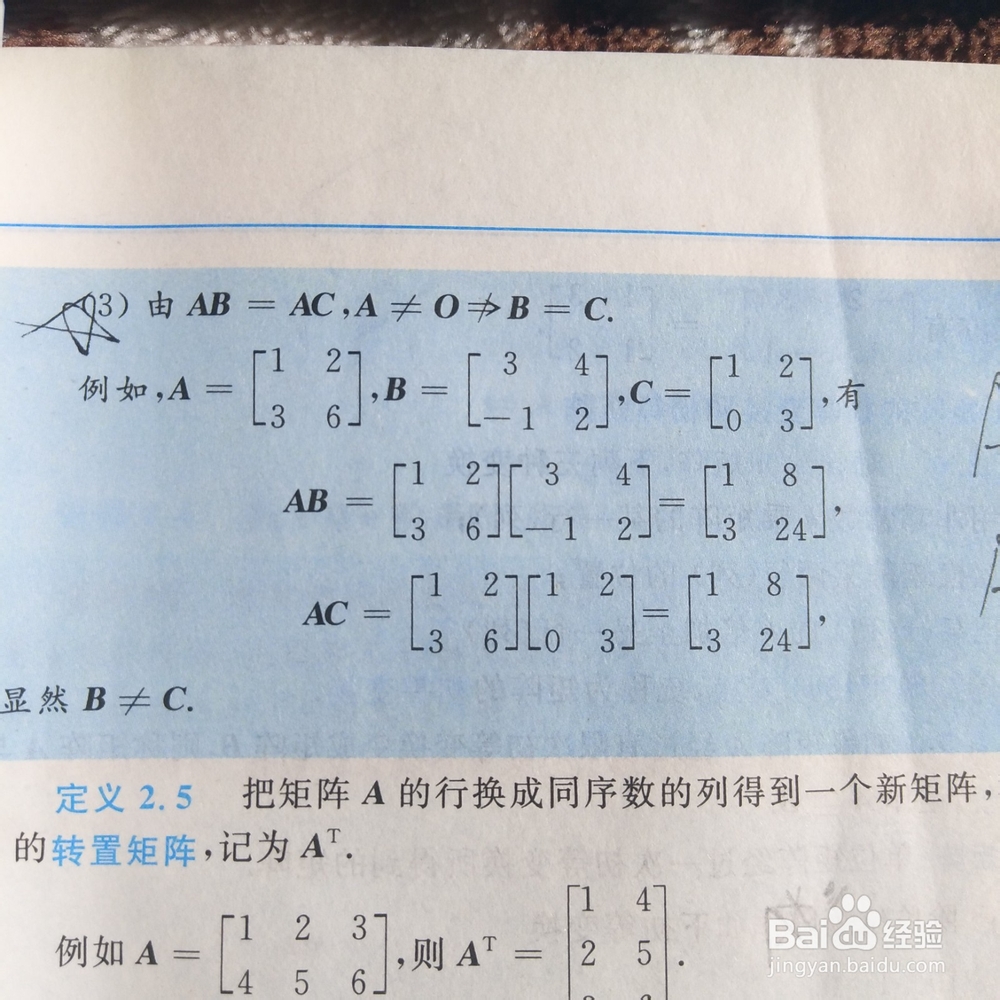 (3) 由 AB = AC, A ≠ O ⇏ B = C.
例如, A = [1 2; 3 6], B = [3 4; −1 2], C = [1 2; 0 3], 有
AB = [1 2; 3 6][3 4; −1 2] = [1 8; 3 24],
AC = [1 2; 3 6][1 2; 0 3] = [1 8; 3 24],
显然 B ≠ C.
定义 2.5 把矩阵 A 的行换成同序数的列得到一个新矩阵,
的转置矩阵, 记为 Aᵀ.
例如 A = [1 2 3; 4 5 6], 则 Aᵀ = [1 4; 2 5;
Baidu 经验
jingyan.baidu.com